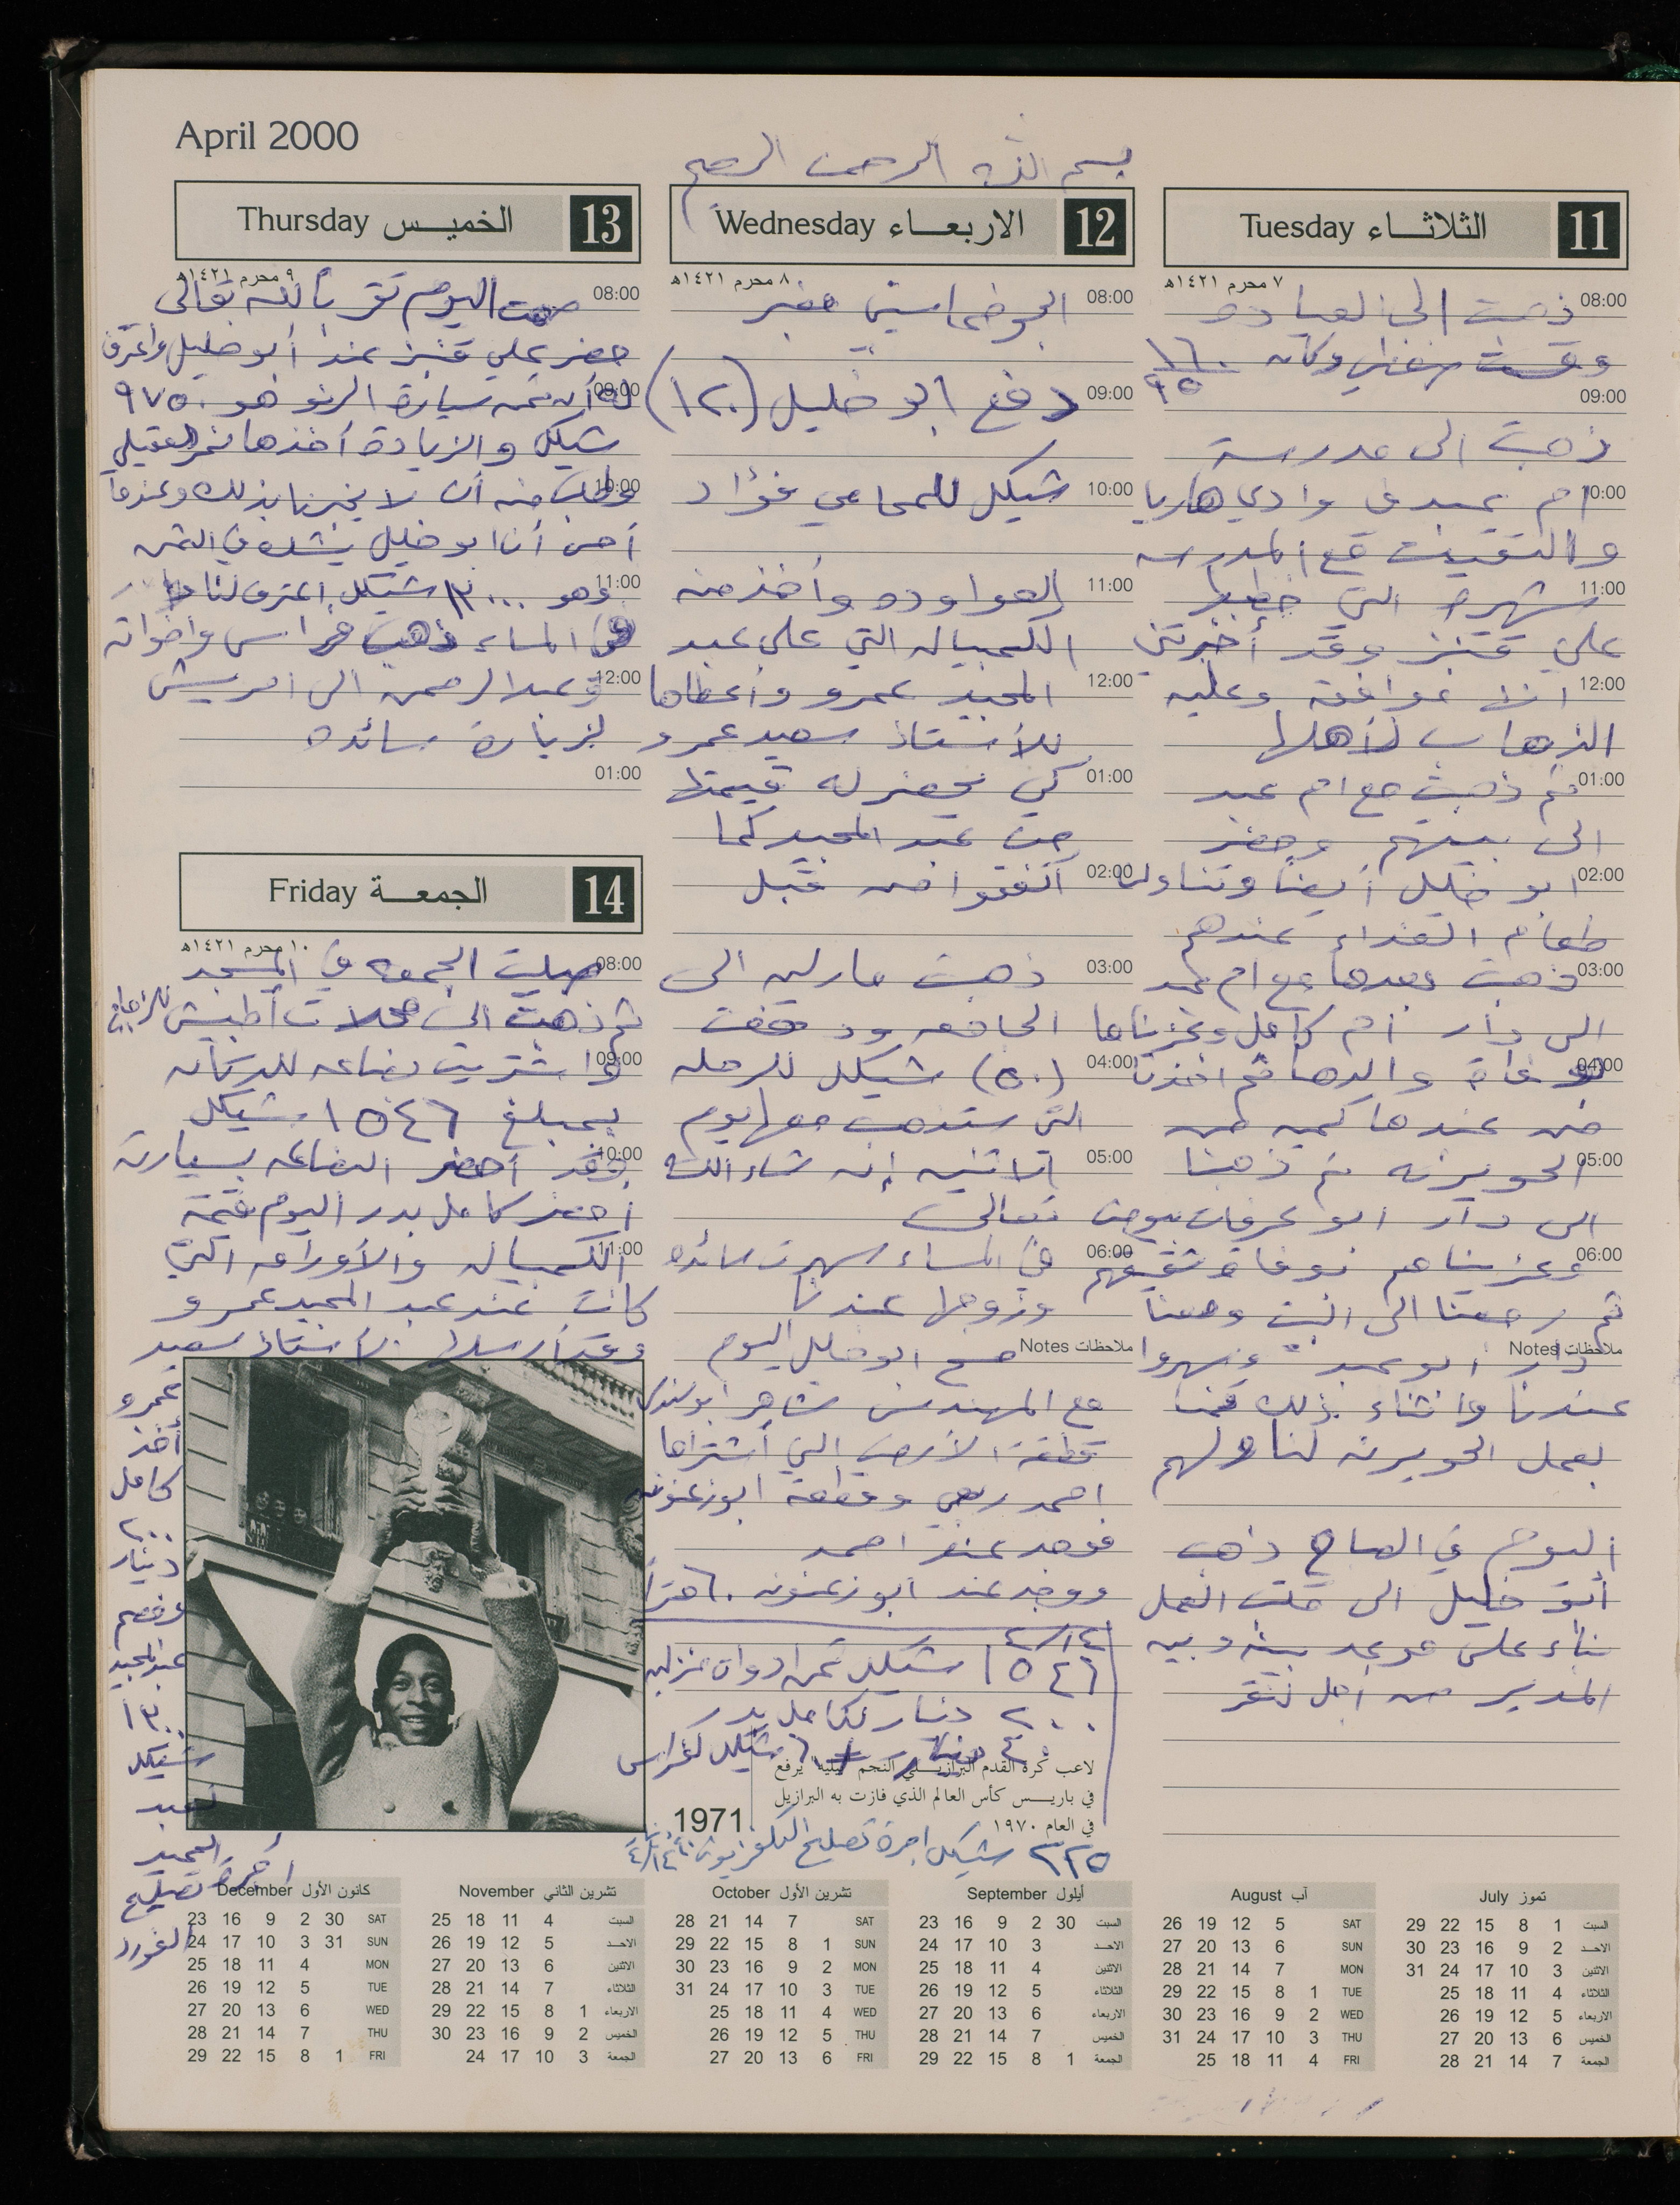 April 2000
بسم الله الرحمن الرحيم
11 الثلاثاء Tuesday
٧ محرم ١٤٢١هـ
08:00
ذهبت الى العيادة
وقست ضغطي وكان ١٦٠/٩٥
09:00
ذهبت الى مدرسة
10:00
ام عبد في وادي هاريا
والتقيت مع المدرسه
11:00
شهيرة التي خطبها
علي قنيز وقد أخبرتني
12:00
انها موافقة وعليه
الذهاب لأهلها
01:00
ثم ذهبت مع ام عبد
الى بيتهم وحضر
02:00
ابو خليل أيضاً وتناولنا
طعام الغداء عندهم
03:00
ذهبت بعدها مع ام عبد
الى دار ام كامل وعزيناها
04:00
بوفاة والدها ثم اخذنا
من عندها كميه من
05:00
الحويرنه ثم ذهبنا
الى دار ابو عرفات بيوض
06:00
وعزيناهم بوفاة شقيقهم
ثم رجعنا الى البيت ومعنا
ملاحظات Notes
دار ابو عبد وسهروا
عندنا واثناء ذلك قمنا
بعمل الحويرنه لنا ولهم
اليوم في الصباح ذهب
أبو خليل الى مكتب العمل
بناء على موعد بينه وبين
المدير من اجل
12 الاربعاء Wednesday
٨ محرم ١٤٢١هـ
08:00
الجو خماسيني مغبر
09:00
دفع ابو خليل (١٢٠)
10:00
شيكل للمحامي فؤاد
11:00
العواوده وأخذ منه
الكمبياله التي على عبد
12:00
المجيد عمرو وأعطاها
للأستاذ سعيد عمرو
01:00
كي يحضر له قيمتها
من عبد المجيد كما
02:00
أتفقوا من قبل
03:00
ذهبت مارلين الى
الجامعه ودفعت
04:00
(٥٠) شيكل للرحله
التي ستذهب معها يوم
05:00
الاثنين إن شاء الله
تعالى
06:00
في المساء سهرت سائده
وزوجها عندنا
ملاحظات Notes
مسح ابو خليل اليوم
مع المهندس شاهر ابو
قطعة الأرض التي أشتراها
احمد ربعي وقطعة ابو زعنونه
فوجد عند احمد
ووجد عند ابو زعنونه
٤/١٤
١٥٤٦ شيكل ثمن ادوات منزليه
٢٠٠ دينار لكامل بدر
شيكل لفراس
لاعب كرة القدم البرازيـــلي النجم "بيليه" يرفع
في باريـــس كأس العالم الذي فازت به البرازيل
في العام ١٩٧٠
1971
٢٢٥ شيكل اجرة تصليح التلفزيون ٤/١٤
13 الخميس Thursday
٩ محرم ١٤٢١هـ
08:00
صمت اليوم تقرباً لله تعالى
حضر علي قنيز عند أبو خليل واعترف
09:00
له أن ثمن سيارة الرنو هو ٩٧٥٠
شيكل والزيادة أخذها نمر العقيلي
10:00
وطلب منه أن لا يخبرنا بذلك وعندما
أحس أن ابو خليل يشك في الثمن
11:00
وهو شيكل إعترف لنا
في المساء ذهب فراس وأخواته
12:00
وعبد الرحمن الى امريش
لزيارة سائده
01:00
14 الجمعة Friday
١٠ محرم ١٤٢١هـ
08:00
صليت الجمعه في المسجد
ثم ذهبت الى محلات أطبيش
09:00
واشتريت بضاعه للدكانه
بمبلغ ١٥٤٦ شيكل
10:00
وقد أحضر البضاعه بسيارته
أحضر كامل بدر اليوم قيمة
11:00
الكمبياله والأوراق التي
كانت عند عبد المجيد عمرو
وقد أرسلها الأستاذ سعيد
عمرو
أخذ
كامل
٢٠٠
دينار
وخصم
عبد المجيد
١٣٠٠
شيكل
لعبد
المجيد
أجرة تصليح
الفورد
كانون الأول December
23 16 9 2 30 SAT
24 17 10 3 31 SUN
25 18 11 4 MON
26 19 12 5 TUE
27 20 13 6 WED
28 21 14 7 THU
29 22 15 8 1 FRI
تشرين الثاني November
25 18 11 4 السبت
26 19 12 5 الاحـد
27 20 13 6 الاثنين
28 21 14 7 الثلاثاء
29 22 15 8 1 الاربعاء
30 23 16 9 2 الخميس
24 17 10 3 الجمعة
تشرين الأول October
28 21 14 7 SAT
29 22 15 8 1 SUN
30 23 16 9 2 MON
31 24 17 10 3 TUE
25 18 11 4 WED
26 19 12 5 THU
27 20 13 6 FRI
أيلول September
23 16 9 2 30 السبت
24 17 10 3 الاحـد
25 18 11 4 الاثنين
26 19 12 5 الثلاثاء
27 20 13 6 الاربعاء
28 21 14 7 الخميس
29 22 15 8 1 الجمعة
آب August
26 19 12 5 SAT
27 20 13 6 SUN
28 21 14 7 MON
29 22 15 8 1 TUE
30 23 16 9 2 WED
31 24 17 10 3 THU
25 18 11 4 FRI
تموز July
29 22 15 8 1 السبت
30 23 16 9 2 الاحـد
31 24 17 10 3 الاثنين
25 18 11 4 الثلاثاء
26 19 12 5 الاربعاء
27 20 13 6 الخميس
28 21 14 7 الجمعة